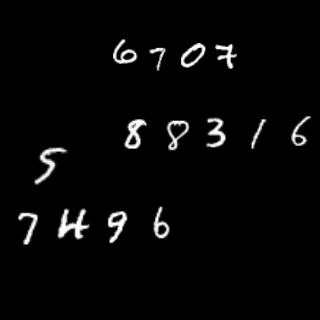 6707
88316
5
7496